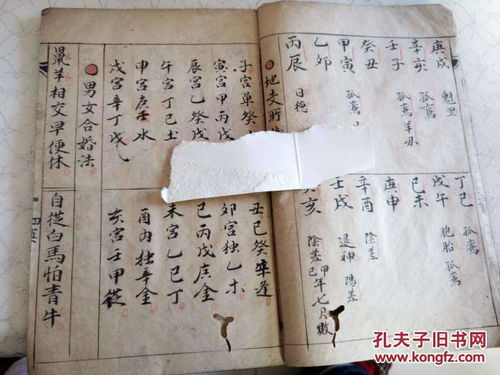 庚戌 魁罡
辛亥 孤鸾
壬子 孤鸾羊刃
癸丑
甲寅 孤鸾
乙卯
丙辰 日德
丁巳 孤鸾
戊午 胞胎 孤鸾
己未
庚申
辛酉 陰差
壬戌 退神 陽差
亥 陰差
地支所
子宫单癸
丑己癸辛
寅宫甲丙
卯宫独乙木
辰宫乙癸戊
巳丙戊庚金
午宫丁己土
未宫乙己丁
申宫庚壬水
酉内独辛金
戌宫辛丁戊
亥宫壬甲
男女合婚法
鼠羊相交早便休
自從白馬怕青牛
孔夫子旧书网
www.kongfz.com